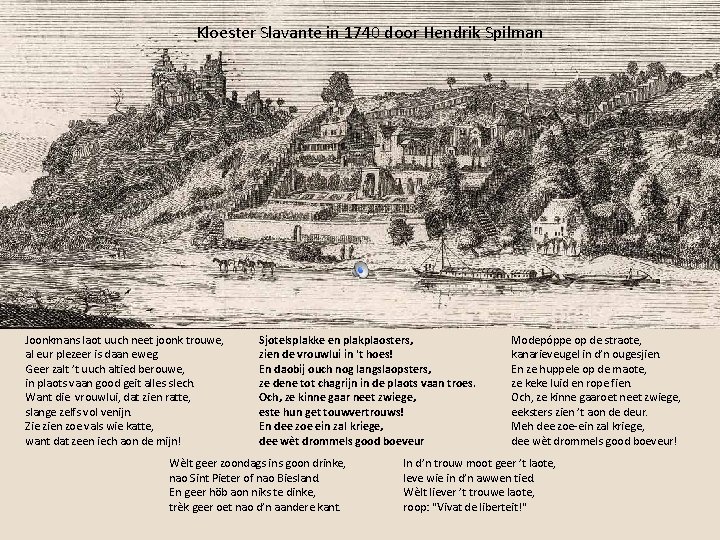 Kloester Slavante in 1740 door Hendrik Spilman
Joonkmans laot uuch neet joonk trouwe,
al eur plezeer is daan eweg.
Geer zalt ’t uuch altied berouwe,
in plaots vaan good geit alles slech.
Want die vrouwlui, dat zien ratte,
slange zelfs vol venijn.
Zie zien zoe vals wie katte,
want dat zeen iech aon de mijn!
Sjotelsplakke en plakplaosters,
zien de vrouwlui in 't hoes!
En daobij ouch nog langslaopsters,
ze dene tot chagrijn in de plaots vaan troes.
Och, ze kinne gaar neet zwiege,
este hun get touwvertrouws!
En dee zoe ein zal kriege,
dee wèt drommels good boeveur
Modepóppe op de straote,
kanarieveugel in d’n ougesjien.
En ze huppele op de maote,
ze keke luid en rope fien.
Och, ze kinne gaaroet neet zwiege,
eeksters zien ’t aon de deur.
Meh dee zoe-ein zal kriege,
dee wèt drommels good boeveur!
Wèlt geer zoondags ins goon drinke,
nao Sint Pieter of nao Biesland.
En geer höb aon niks te dinke,
trèk geer oet nao d’n aandere kant.
In d’n trouw moot geer ’t laote,
leve wie in d’n awwen tied.
Wèlt liever ’t trouwe laote,
roop: "Vivat de liberteit!"